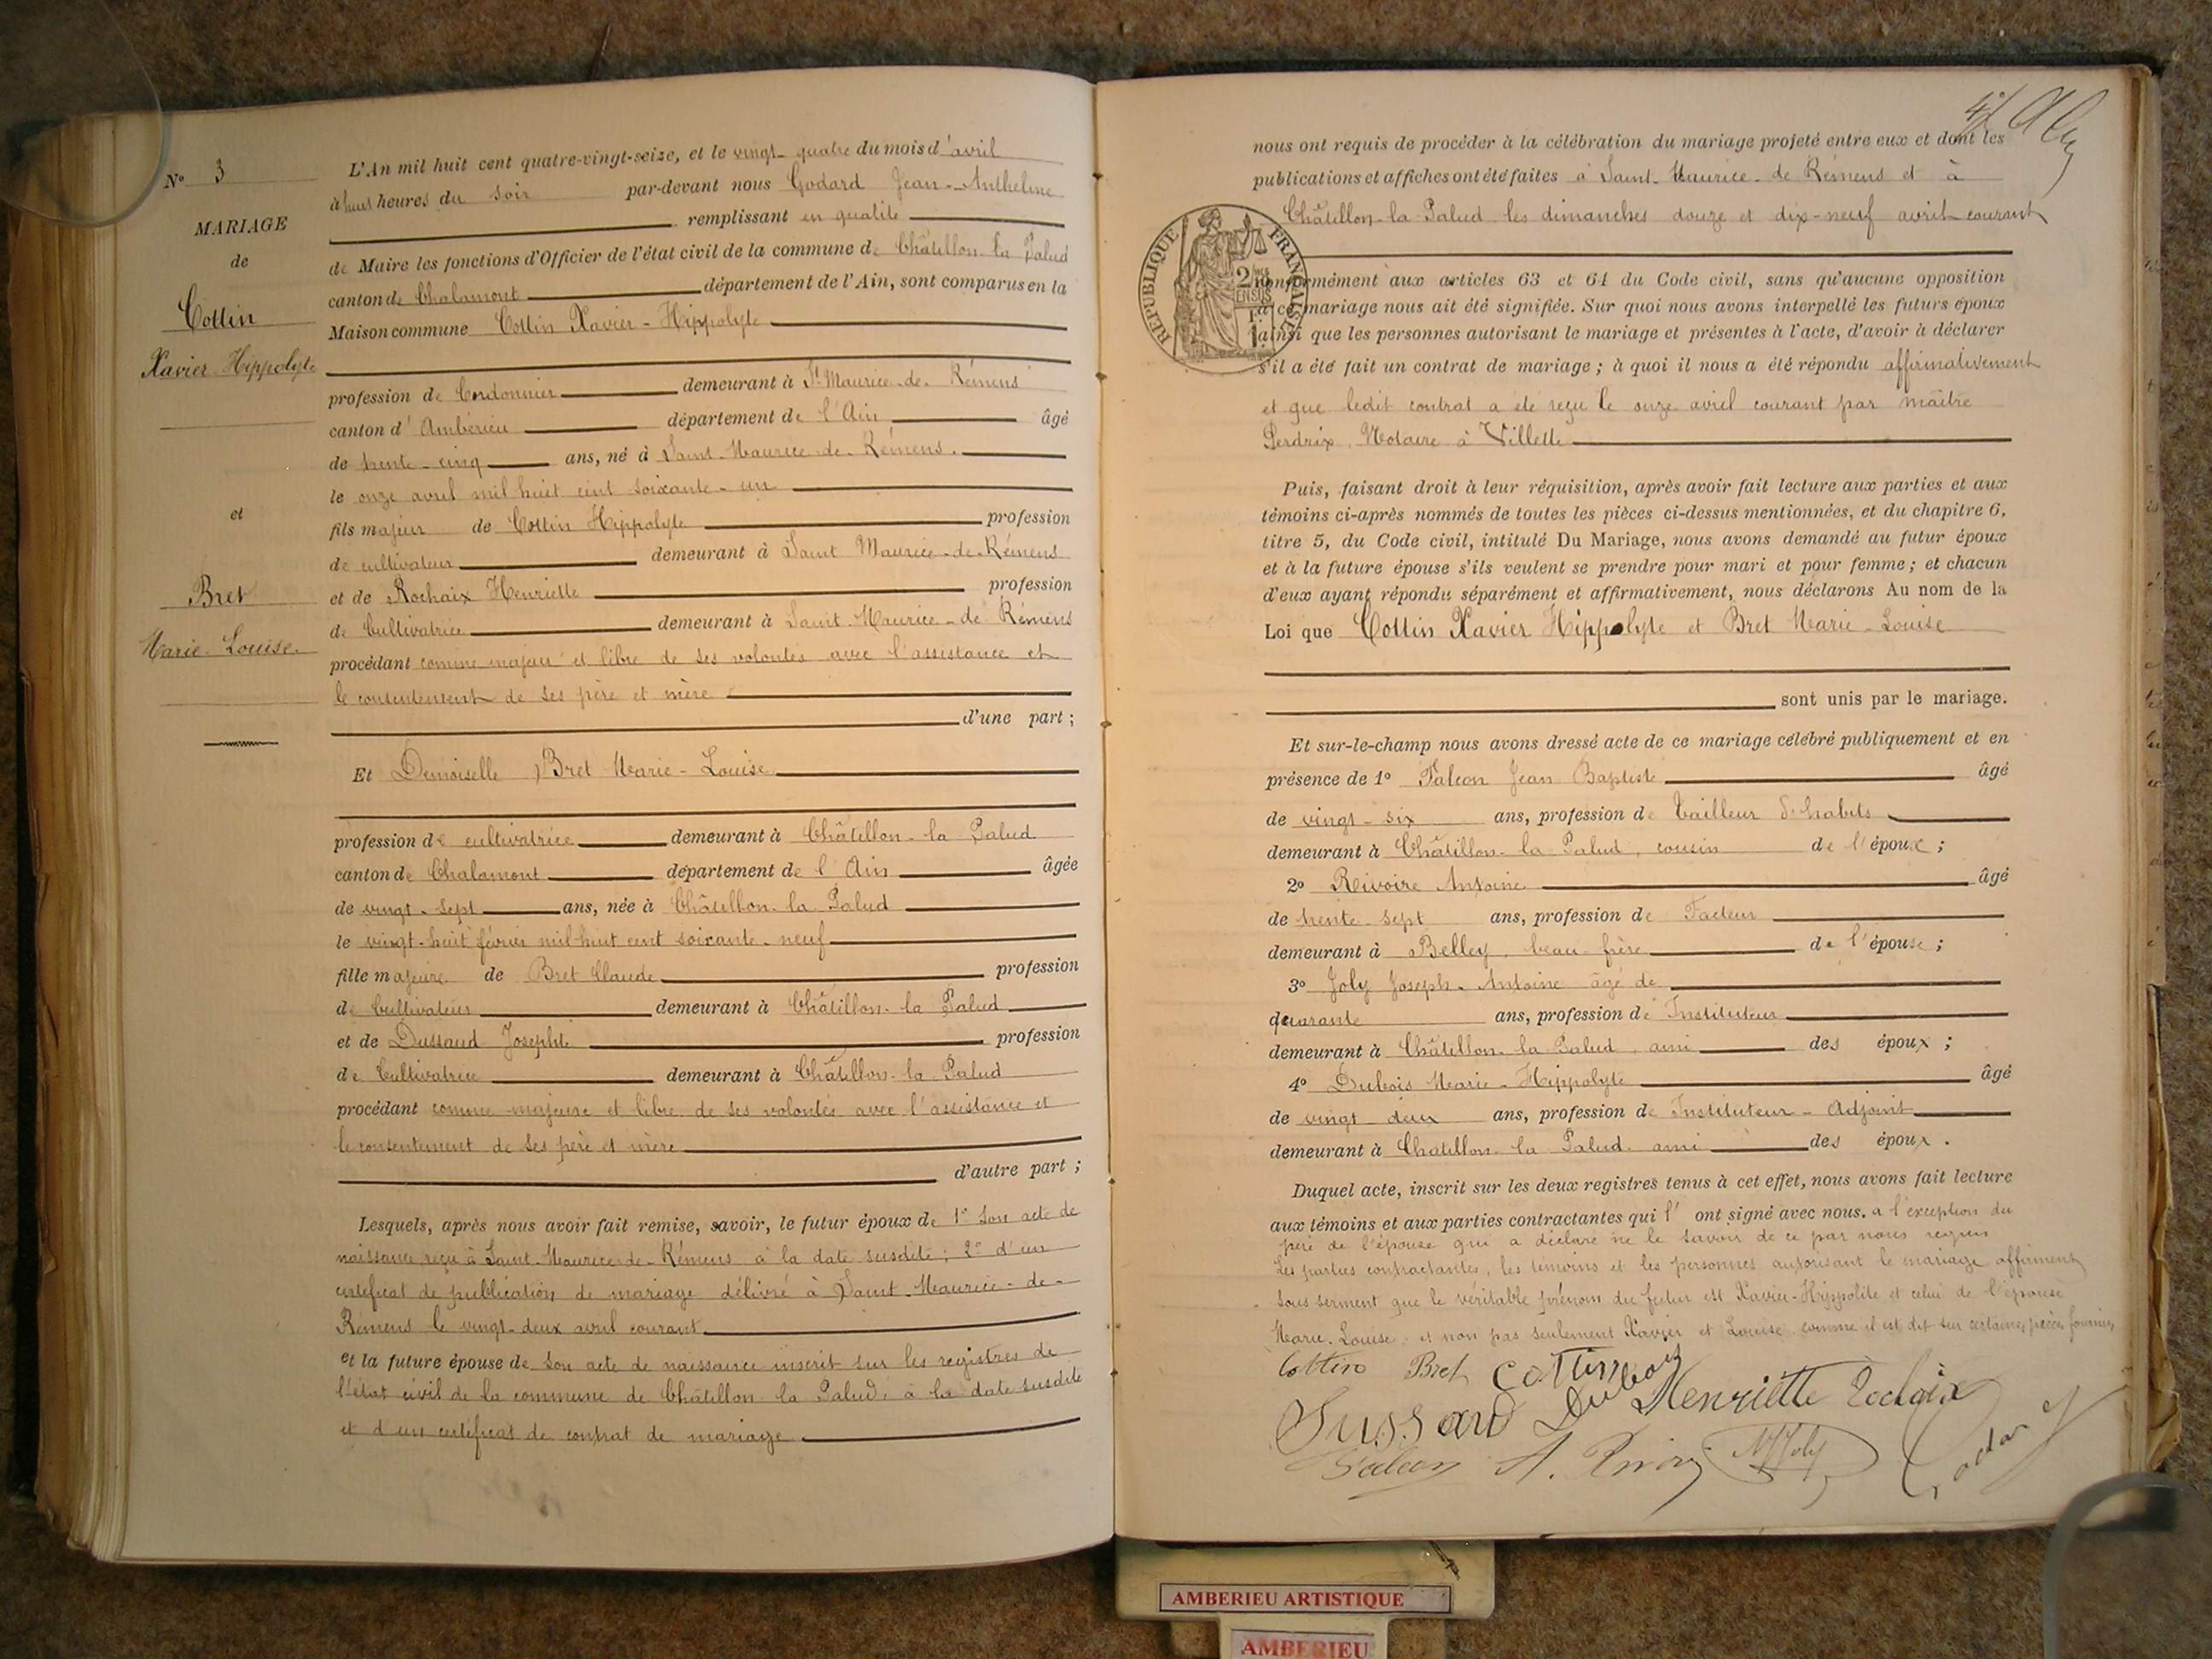 N° 3
MARIAGE
de
Cottin
Xavier Hippolyte
et
Bret
Marie-Louise.
L'An mil huit cent quatre-vingt-seize, et le vingt-quatre du mois d'avril
à huit heures du soir par-devant nous Godard Jean-Anthelme
remplissant en qualité
de Maire les fonctions d'Officier de l'état civil de la commune de Châtillon-la Palud
canton de Chalamont département de l'Ain, sont comparus en la
Maison commune Cottin Xavier-Hippolyte
profession de Cordonnier demeurant à St Maurice-de-Rémens
canton d'Ambérieu département de l'Ain âgé
de trente-cinq ans, né à Saint-Maurice-de-Rémens.
le onze avril mil huit cent soixante-un
fils majeur de Cottin Hippolyte profession
de cultivateur demeurant à Saint Maurice-de-Rémens
et de Rochaix Henriette profession
de Cultivatrice demeurant à Saint-Maurice-de Rémens
procédant comme majeur et libre de ses volontés avec l'assistance et
le consentement de ses père et mère
d'une part ;
Et Demoiselle Bret Marie-Louise
profession de cultivatrice demeurant à Châtillon-la Palud
canton de Chalamont département de l'Ain âgée
de vingt-sept ans, née à Châtillon-la Palud
le vingt-huit février mil huit cent soixante-neuf
fille majeure de Bret Claude profession
de Cultivateur demeurant à Châtillon-la Palud
et de Dussaud Josephte profession
de Cultivatrice demeurant à Châtillon-la-Palud
procédant comme majeure et libre de ses volontés avec l'assistance et
le consentement de ses père et mère
d'autre part ;
Lesquels, après nous avoir fait remise, savoir, le futur époux de 1° son acte de
naissance reçu à Saint-Maurice-de-Rémens à la date susdite ; 2° d'un
certificat de publication de mariage délivré à Saint-Maurice-de-
Rémens le vingt-deux avril courant
et la future épouse de son acte de naissance inscrit sur les registres de
l'état civil de la commune de Châtillon la Palud, à la date susdite
et d'un certificat de contrat de mariage
nous ont requis de procéder à la célébration du mariage projeté entre eux et dont les
publications et affiches ont été faites à Saint-Maurice-de Rémens et à
Châtillon-la-Palud les dimanches douze et dix-neuf avril courant
RÉPUBLIQUE FRANÇAISE
conformément aux articles 63 et 64 du Code civil, sans qu'aucune opposition
à ce mariage nous ait été signifiée. Sur quoi nous avons interpellé les futurs époux
ainsi que les personnes autorisant le mariage et présentes à l'acte, d'avoir à déclarer
s'il a été fait un contrat de mariage ; à quoi il nous a été répondu affirmativement
et que ledit contrat a été reçu le onze avril courant par maître
Perdrix, Notaire à Villette
Puis, faisant droit à leur réquisition, après avoir fait lecture aux parties et aux
témoins ci-après nommés de toutes les pièces ci-dessus mentionnées, et du chapitre 6,
titre 5, du Code civil, intitulé Du Mariage, nous avons demandé au futur époux
et à la future épouse s'ils veulent se prendre pour mari et pour femme ; et chacun
d'eux ayant répondu séparément et affirmativement, nous déclarons Au nom de la
Loi que Cottin Xavier Hippolyte et Bret Marie-Louise
sont unis par le mariage.
Et sur-le-champ nous avons dressé acte de ce mariage célébré publiquement et en
présence de 1° Falcon Jean Baptiste âgé
de vingt-six ans, profession de Tailleur d'habits
demeurant à Châtillon-la Palud, cousin de l'époux ;
2° Rivoire Antoine âgé
de trente-sept ans, profession de Facteur
demeurant à Belley, beau-frère de l'épouse ;
3° Joly Joseph-Antoine âgé de
quarante ans, profession de Instituteur
demeurant à Châtillon-la Palud, ami des époux ;
4° Dubois Marie-Hippolyte âgé
de vingt deux ans, profession de Instituteur-Adjoint
demeurant à Chatillon-la Palud. ami des époux.
Duquel acte, inscrit sur les deux registres tenus à cet effet, nous avons fait lecture
aux témoins et aux parties contractantes qui l'ont signé avec nous. a l'exception du
père de l'épouse qui a déclaré ne le savoir de ce par nous requis
Les parties contractantes, les témoins et les personnes autorisant le mariage affirment
sous serment que le véritable prénom du futur est Xavier-Hippolite et celui de l'épouse
Marie-Louise, et non pas seulement Xavier et Louise comme il est dit sur certaines pièces fournies
Cottin Bret Cottin Dubois
Dussaud Henriette Rochaix
Falcon A. Rivoire Joly Godard
AMBERIEU ARTISTIQUE
AMBERIEU